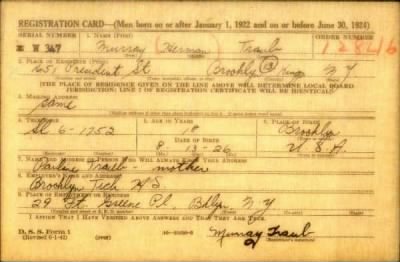 REGISTRATION CARD—(Men born on or after January 1, 1922 and on or before June 30, 1924)
SERIAL NUMBER 1. NAME (Print) ORDER NUMBER
W 347 Murray (Herman) Traub 12846
2. PLACE OF RESIDENCE (Print)
1651 President St. Brooklyn 13 Kings N Y
[THE PLACE OF RESIDENCE GIVEN ON THE LINE ABOVE WILL DETERMINE LOCAL BOARD
JURISDICTION; LINE 2 OF REGISTRATION CERTIFICATE WILL BE IDENTICAL]
3. MAILING ADDRESS
same
4. TELEPHONE 5. AGE IN YEARS 6. PLACE OF BIRTH
Sl 6-1752 18 Brooklyn
DATE OF BIRTH
8-13-26 U. S. A.
7. NAME AND ADDRESS OF PERSON WHO WILL ALWAYS KNOW YOUR ADDRESS
Pauline Traub - mother
8. EMPLOYER'S NAME AND ADDRESS
Brooklyn Tech H S
9. PLACE OF EMPLOYMENT OR BUSINESS
29 Ft. Greene Pl. Bklyn N Y
I AFFIRM THAT I HAVE VERIFIED ABOVE ANSWERS AND THAT THEY ARE TRUE.
D. S. S. Form 1
(Revised 6-1-42) (over)
Murray Traub